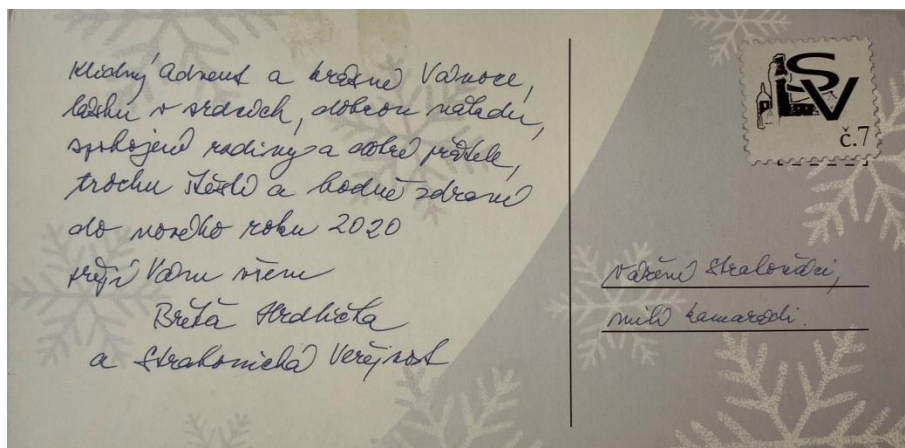 Klidný Advent a krásné Vánoce,
lásku v srdcích, dobrou náladu,
spokojené rodiny a dobré přátele,
trochu štěstí a hodně zdraví
do nového roku 2020
přejí Vám všem
Břéťa Hrdlička
a Strakonická Veřejnost
SV
č.7
Vážení Strakonáci,
milí kamarádi.